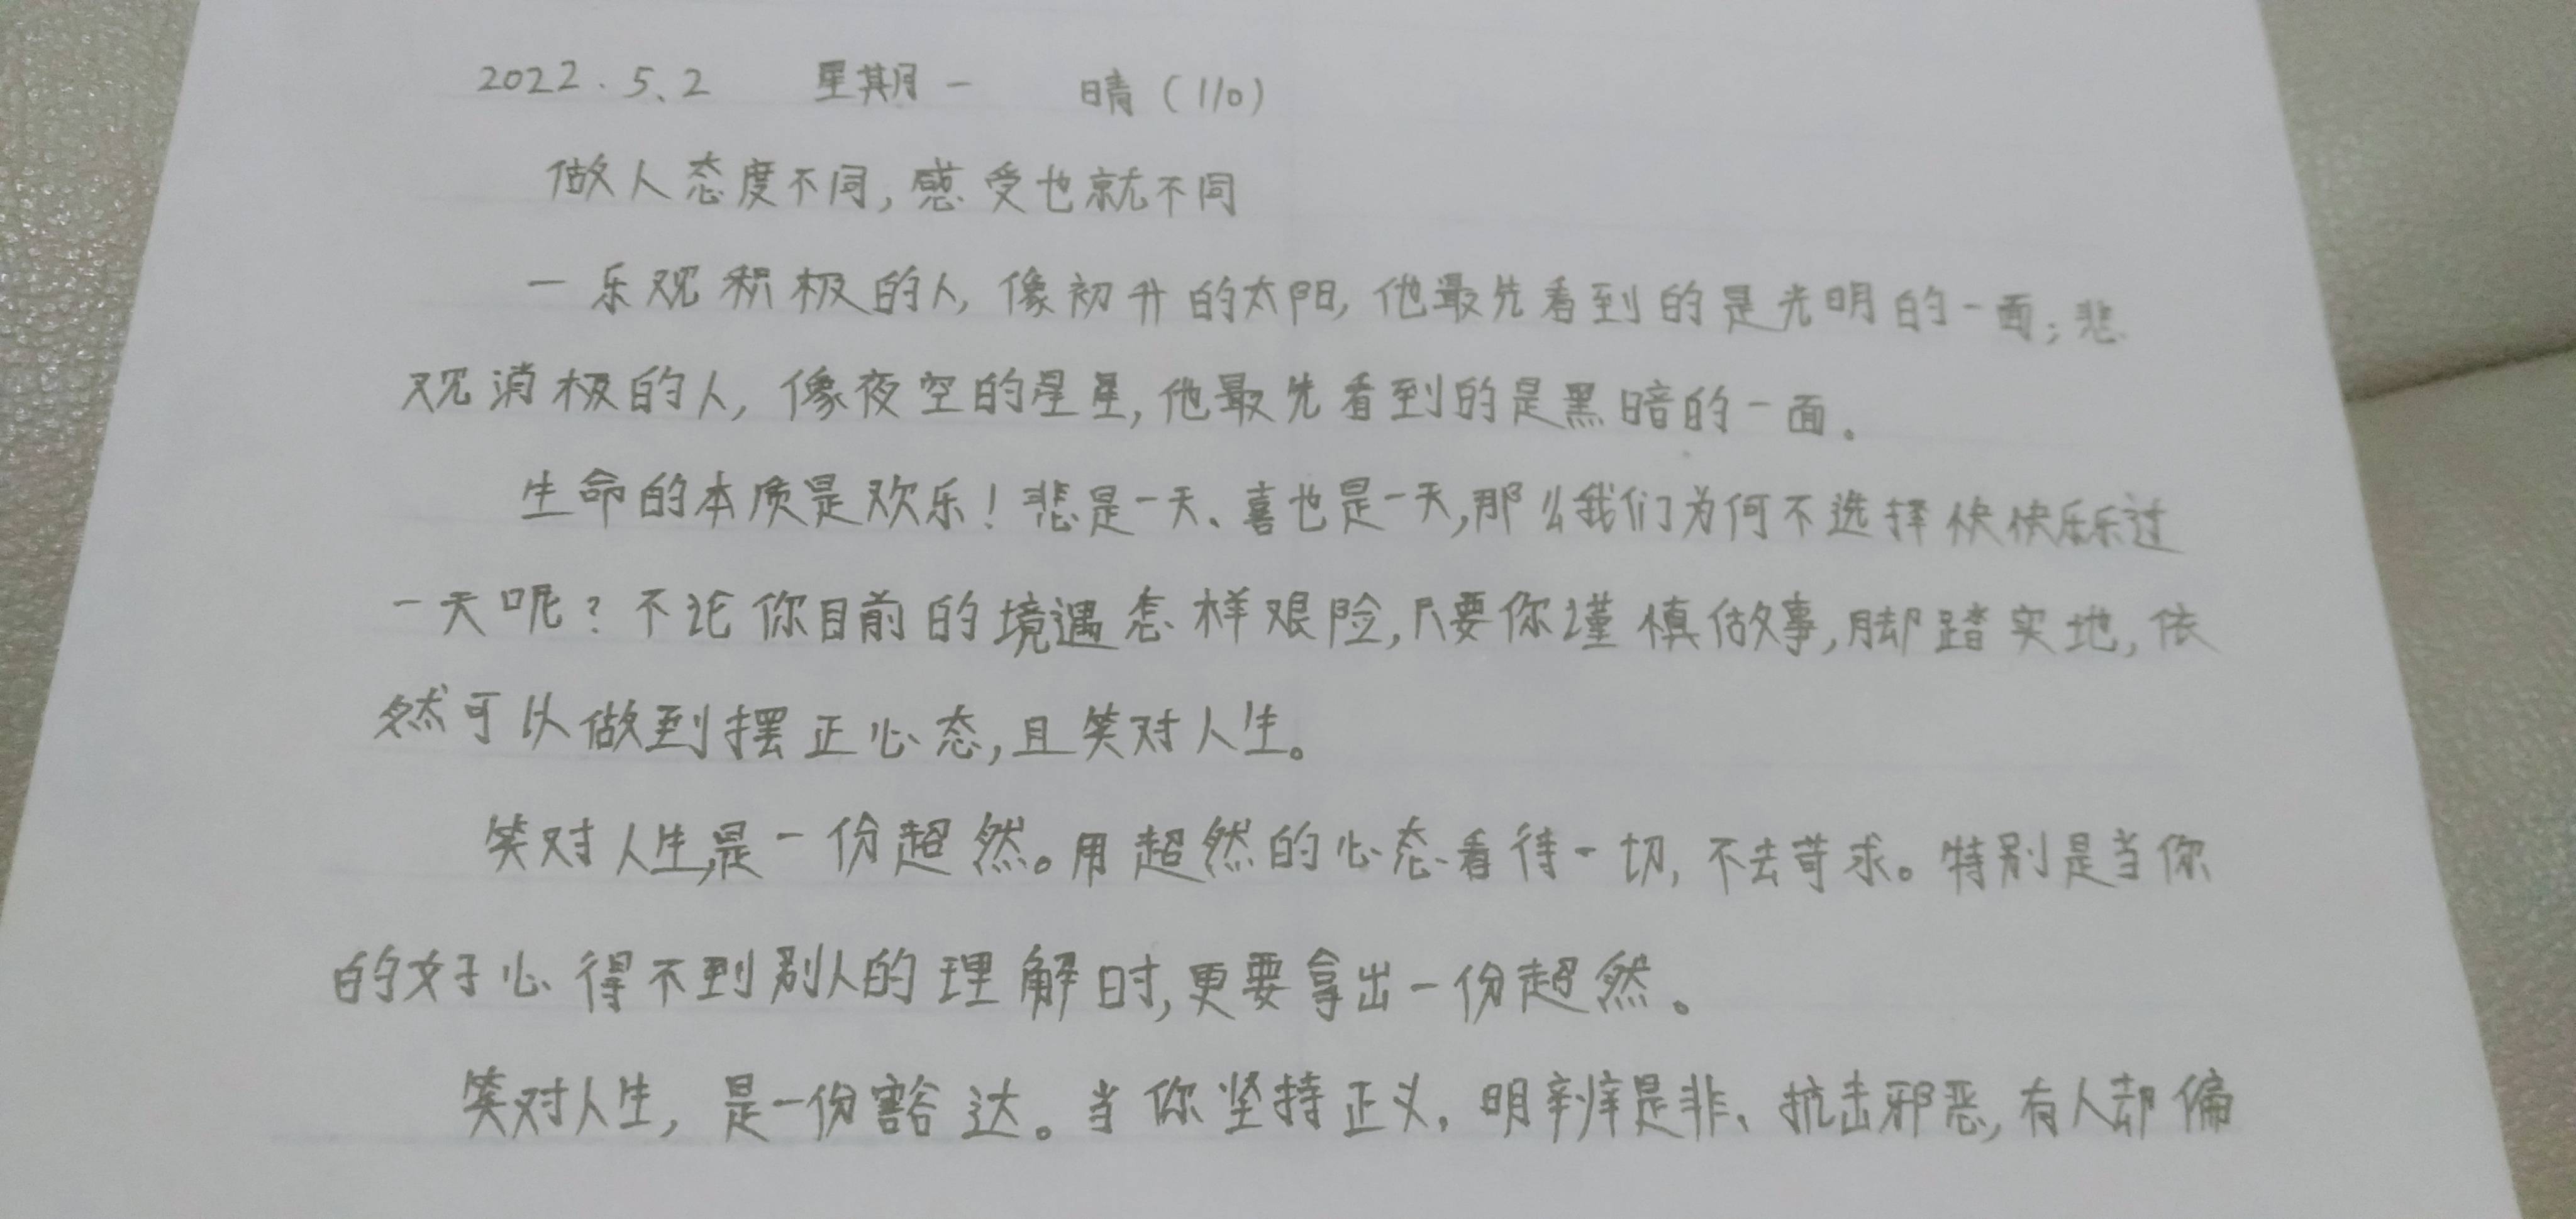 2022.5.2 星期一 晴(110)
做人态度不同,感受也就不同
一乐观积极的人,像初升的太阳,他最先看到的是光明的一面;悲
观消极的人,像夜空的星星,他最先看到的是黑暗的一面。
生命的本质是欢乐!悲是一天、喜也是一天,那么我们为何不选择快快乐乐过
一天呢?不论你目前的境遇怎样艰险,只要你谨慎做事,脚踏实地,依
然可以做到摆正心态,且笑对人生。
笑对人生,是一份超然。用超然的心态看待一切,不去苛求。特别是当你
的好心得不到别人的理解时,更要拿出一份超然。
笑对人生,是一份豁达。当你坚持正义,明辨是非、抗击邪恶,有人却偏